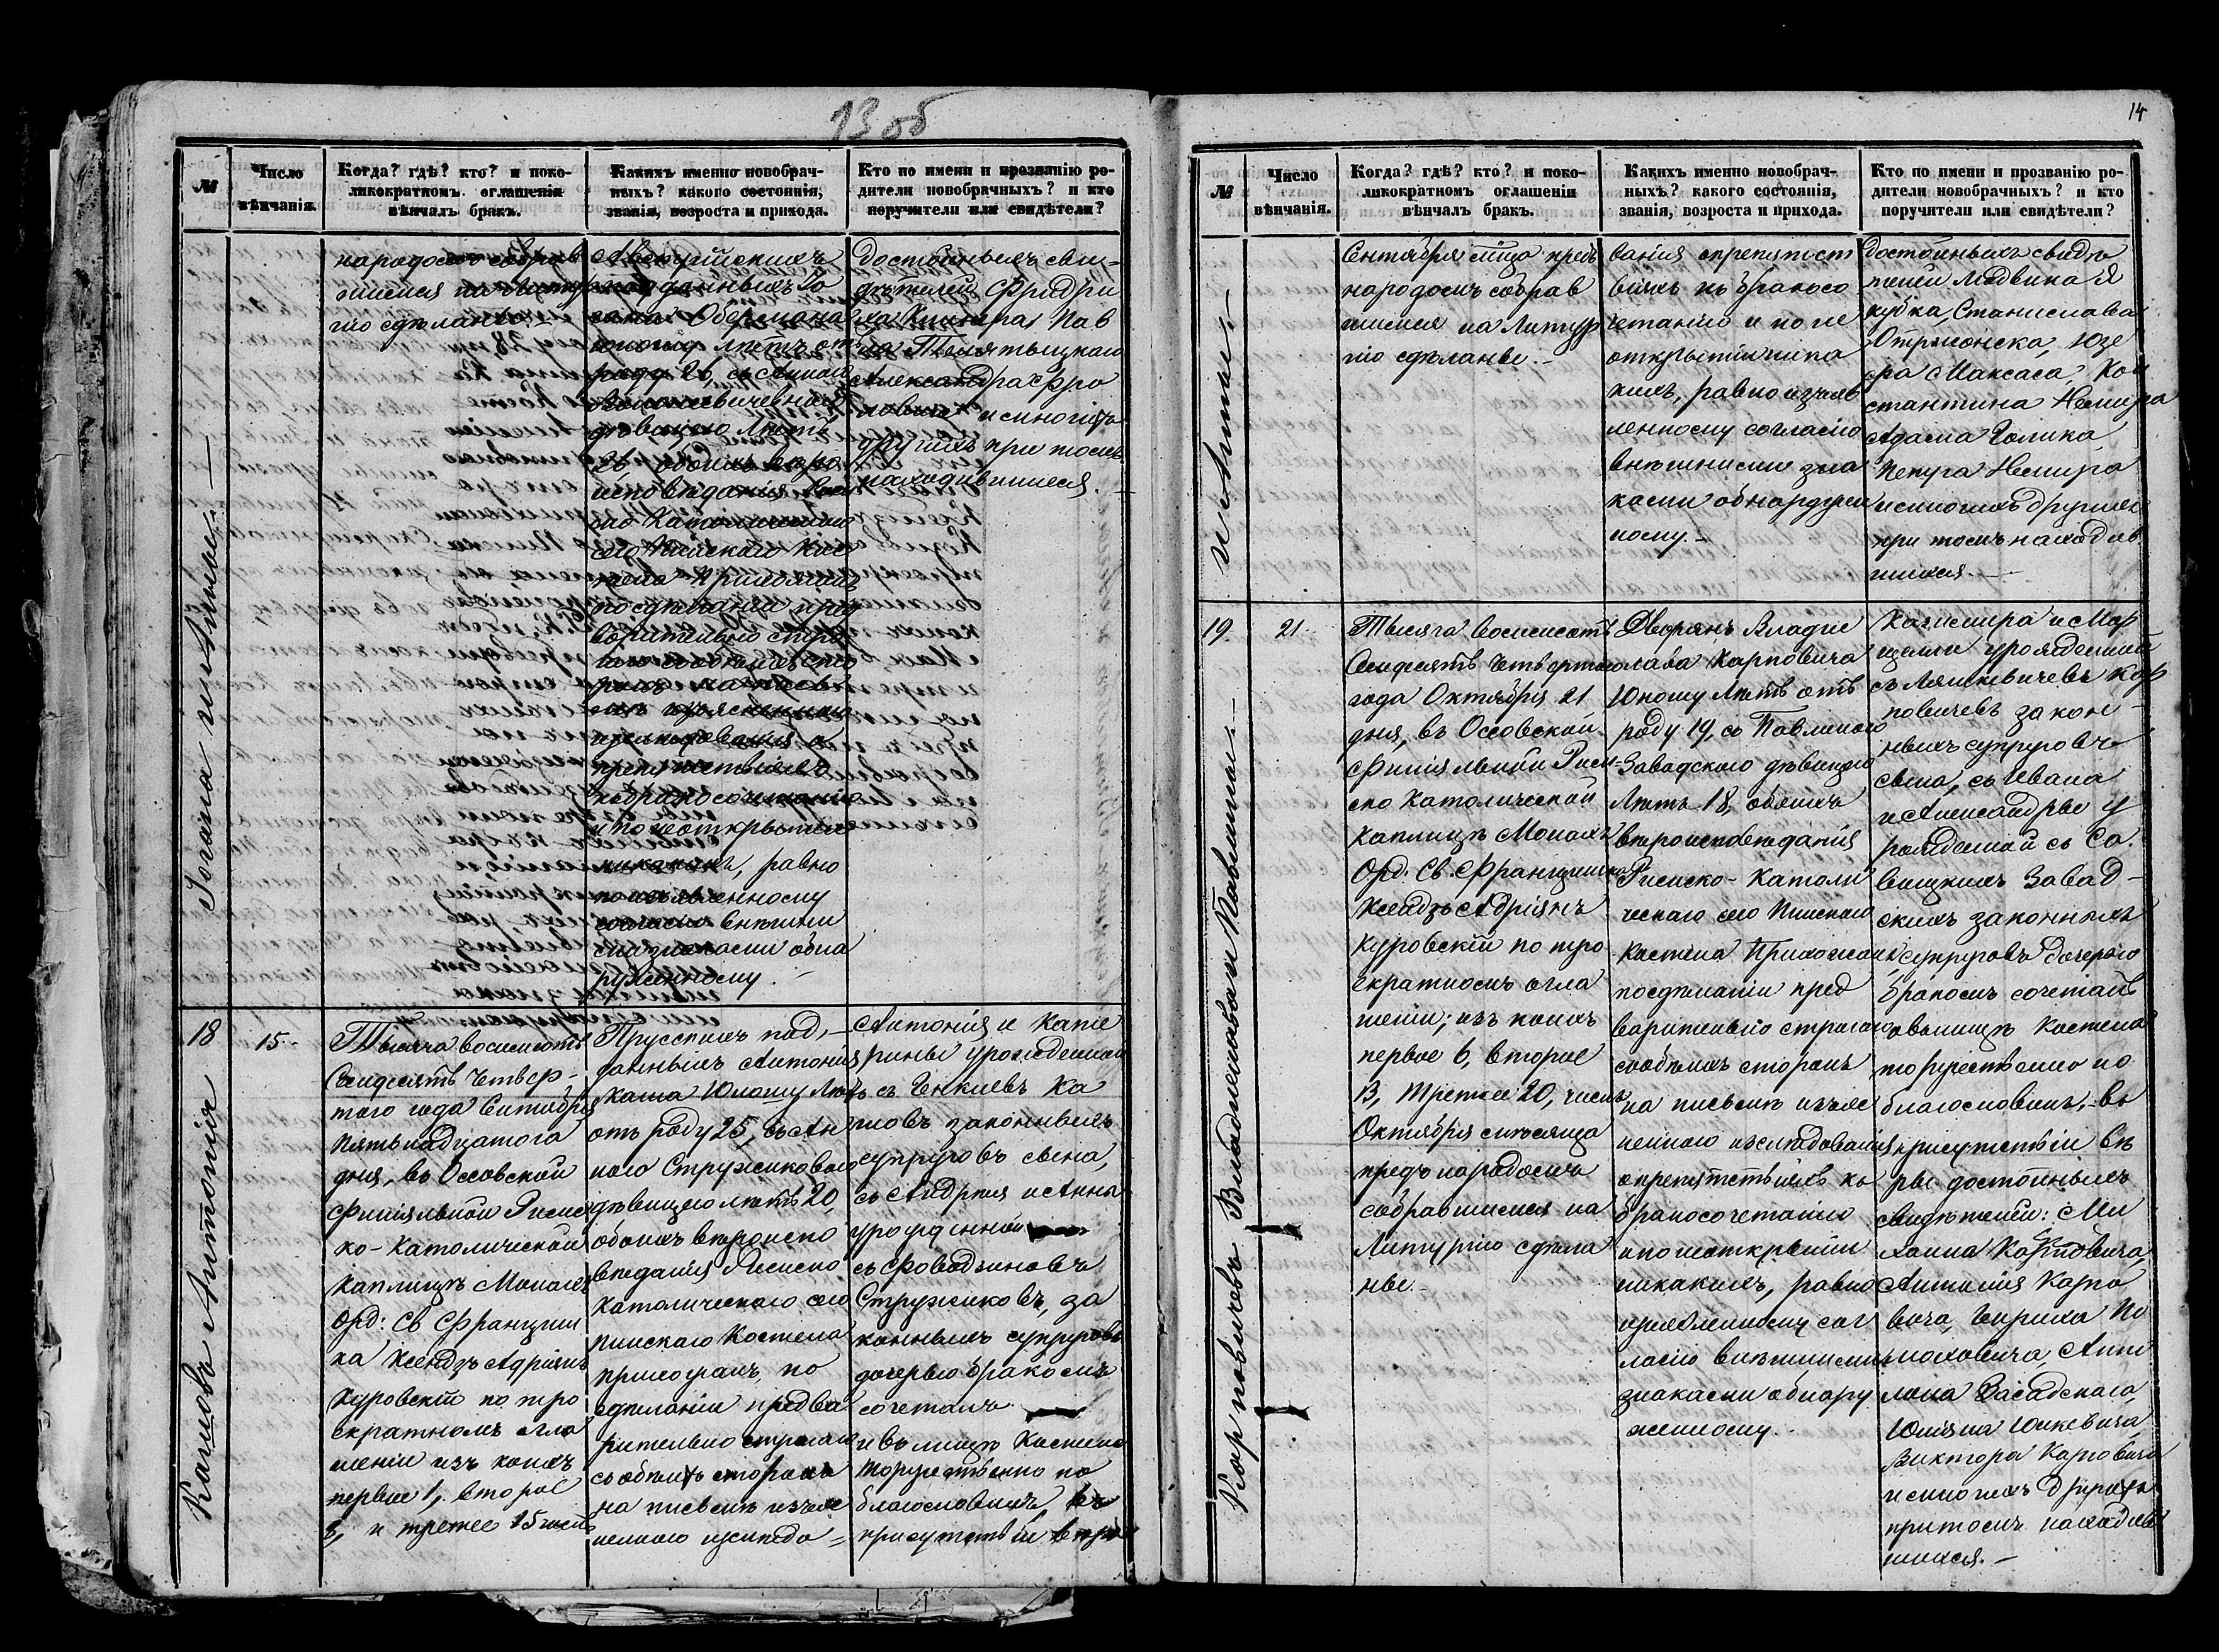 13 об
№
Число
вѣнчанія.
Когда? гдѣ? кто? и поко-
ликократномъ оглашеніи
вѣнчалъ бракъ.
Какихъ именно новобрач-
ныхъ? какого состоянія,
званія, возроста и прихода.
Кто по имени и прозванію ро-
дители новобрачныхъ? и кто
поручители или свидѣтели?
народомъ собрав
шимся на Литур
гію сдѣланы.-
Австрійскихъ
подданныхъ Іо
Обермана
юношу лѣтъ отъ
роду 26, съ Анною
дѣвицею лѣтъ
26 обоихъ вѣро
исповѣданія Рим
ско Католическаго
сего Пинскаго Кос
тела Прихожанъ
по сдѣланіи пред
варительно стро
гаго съ обѣихъ сто
ронъ на пись
мѣ изъясненнаго
изслѣдованія о
препятствіяхъ
къ бракосочетанію
и по неоткрытіи
никакихъ, равно
по изъявленному
согласію внѣшни
ми знаками обна
руженному.
достойныхъ сви-
дѣтелей Фридри
ха Пав
ла
Александра Фро
ловича и многихъ
другихъ при томъ
находившихся.-
Іогана и и Анны.-
18
15.-
Тысяча восемсотъ
Семдесятъ Четвер-
таго года Сентября
Пятьнадцатого
дня, въ Оссовской
Филіяльной Римс
ко-Католической
Каплицѣ Монахъ
Орд: Св Францыш
ка Ксендзъ Адріянъ
Куровскій по тро
екратномъ огла
шеніи изъ коихъ
первое 1, второе
8, и третее 15 чисе
Прусскихъ под,-
данныхъ Антонія
Кана Юношу Лѣтъ
отъ роду 25, съ Ан
ною Стружиковою
дѣвицею лѣтъ 20,
обоихъ вѣроиспо
вѣданія Римско
Католическаго сего
пинскаго Костела
прихожанъ, по
сдѣланіи предва
рительно строгаго
съ обѣихъ сторонъ
на письмѣ изъяс
неннаго изслѣдо-
Антонія и Кате
рины урожденной
съ Генкиевъ Ка
новъ законныхъ
супруговъ сына,
съ Андрея и Анны
урожденной
съ
Стружиковъ, за
конныхъ супруговъ
дочерью бракомъ
сочеталъ.
и въ лицѣ Костела
Торжественно по
благословилъ, въ
присутствіи вѣро
Канова Антонія
14
№
Число
вѣнчанія.
Когда? гдѣ? кто? и поко-
ликократномъ оглашеніи
вѣнчалъ бракъ.
Какихъ именно новобрач-
ныхъ? какого состоянія,
званія, возроста и прихода.
Кто по имени и прозванію ро-
дители новобрачныхъ? и кто
поручители или свидѣтели?
и Анны.-
Сентября м͠ца предъ
народомъ собрав
шимся на Литур
гію сдѣланы.-
ванія о препятст
віяхъ къ бракосо
четанію и по не
открытіи ника
кихъ, равно изъяв
ленному согласію
внѣшними зна
ками обнаружен
ному.-
достойныхъ свидѣ
телей Людвика Я
кубка, Станислава
Юзе
фа Максаса, Кон
стантина Немира
Адама Голика,
Петра Немира
и многихъ другихъ
при томъ находив
шихся.-
19
21.-
Тысяча восемсотъ
Семдесятъ Четвертаго
года Октября 21
дня, въ Оссовской
Филіяльной Рим-
ско Католической
Каплицѣ Монахъ
Орд. Св. Францишка
Ксендзъ Адріянъ
Куровскій по тро
екратномъ огла
шеніи; изъ коихъ
первое 6, второе
13, Третее 20, числъ
Октября мѣсяца
предъ народомъ
собравшимся на
Литургію сдѣла
ны.-
Дворянъ Владис
лава Карповича
Юношу Лѣтъ отъ
роду 19, съ Павлиною
Завадскою дѣвицею
Лѣтъ 18, обоихъ
вѣроисповѣданія
Римско-Католи
ческаго сего Пинскаго
Костела Прихожанъ
по сдѣланіи пред
варительно строгаго
съ обѣихъ сторонъ
на письмѣ изъяс
неннаго изслѣдованія
о препятствіяхъ къ
бракосочетанію
и по неоткрытіи
никакихъ, равно
изъявленному сог
ласію внѣшними
знаками обнару
женному.
Казимира и Мар
цели урожденной
съ Ляшкевичевъ Кар
повичевъ закон-
ныхъ супруговъ
сына, съ Ивана
и Александры у
рожденной съ Са
вицкихъ Завад-
скихъ законныхъ
супруговъ дочерью
бракомъ сочеталъ
и въ лицѣ Костела
торжественно по
благословилъ,-въ
присутствіи вѣ
ры достойныхъ
свидѣтелей: Ми
хаила Карповича,
Антонія Карпо
вича, Генриха По
Анто
лина Засадскаго,
Юліяна Юшкевича,
Виктора Карповича
и многихъ другихъ
притомъ находив
шихся.-
Карповичевъ Владислава и Павлины.-